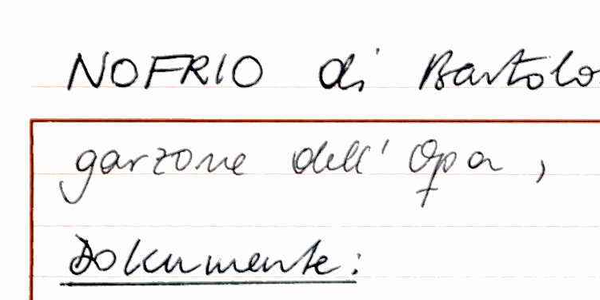 NOFRIO di Bartolo
garzone dell' Opa,
Dokumente: